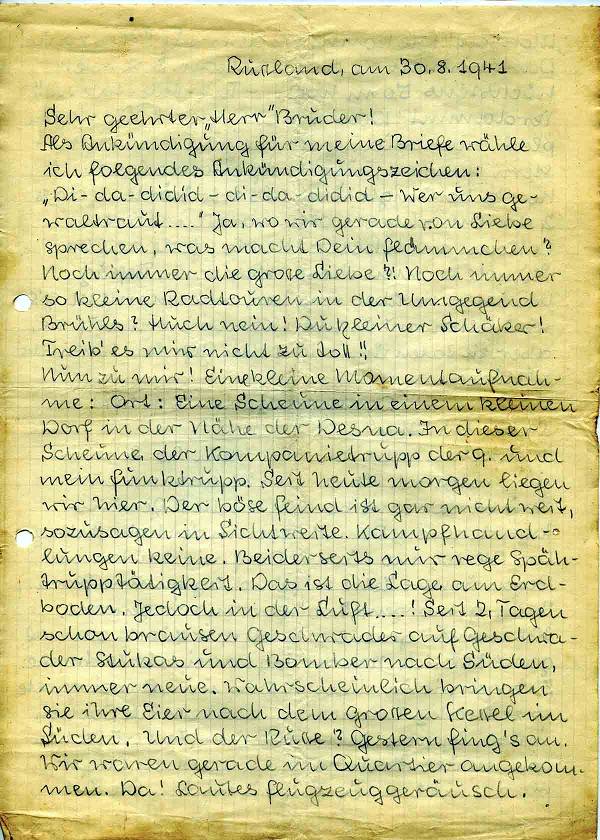 Rußland, am 30.8.1941
Sehr geehrter „Herr" Bruder!
Als Ankündigung für meine Briefe wähle
ich folgendes Ankündigungszeichen:
„Di-da-didid-di-da-didid – Wer uns ge-
waltraut...." Ja, wo wir gerade von Liebe
sprechen, was macht Dein Flämmchen?
Noch immer die große Liebe?! Noch immer
so kleine Radtouren in der Umgegend
Brühls? Huch nein! Du kleiner Schäker!
Treib' es mir nicht zu toll!!
Nun zu mir! Eine kleine Momentaufnah-
me: Ort: Eine Scheune in einem kleinen
Dorf in der Nähe der Desna. In dieser
Scheune der Kompanietrupp der 9. und
mein Funktrupp. Seit heute morgen liegen
wir hier. Der böse Feind ist gar nicht weit,
sozusagen in Sichtweite. Kampfhand-
lungen keine. Beiderseits nur rege Späh-
trupptätigkeit. Das ist die Lage am Erd-
boden. Jedoch in der Luft....! Seit 2 Tagen
schon brausen Geschwader auf Geschwa-
der Stukas und Bomber nach Süden,
immer neue. Wahrscheinlich bringen
sie ihre Eier nach dem großen Kessel im
Süden. Und der Russe? Gestern fing's an.
Wir waren gerade im Quartier angekom-
men. Da! Lautes Flugzeuggeräusch.